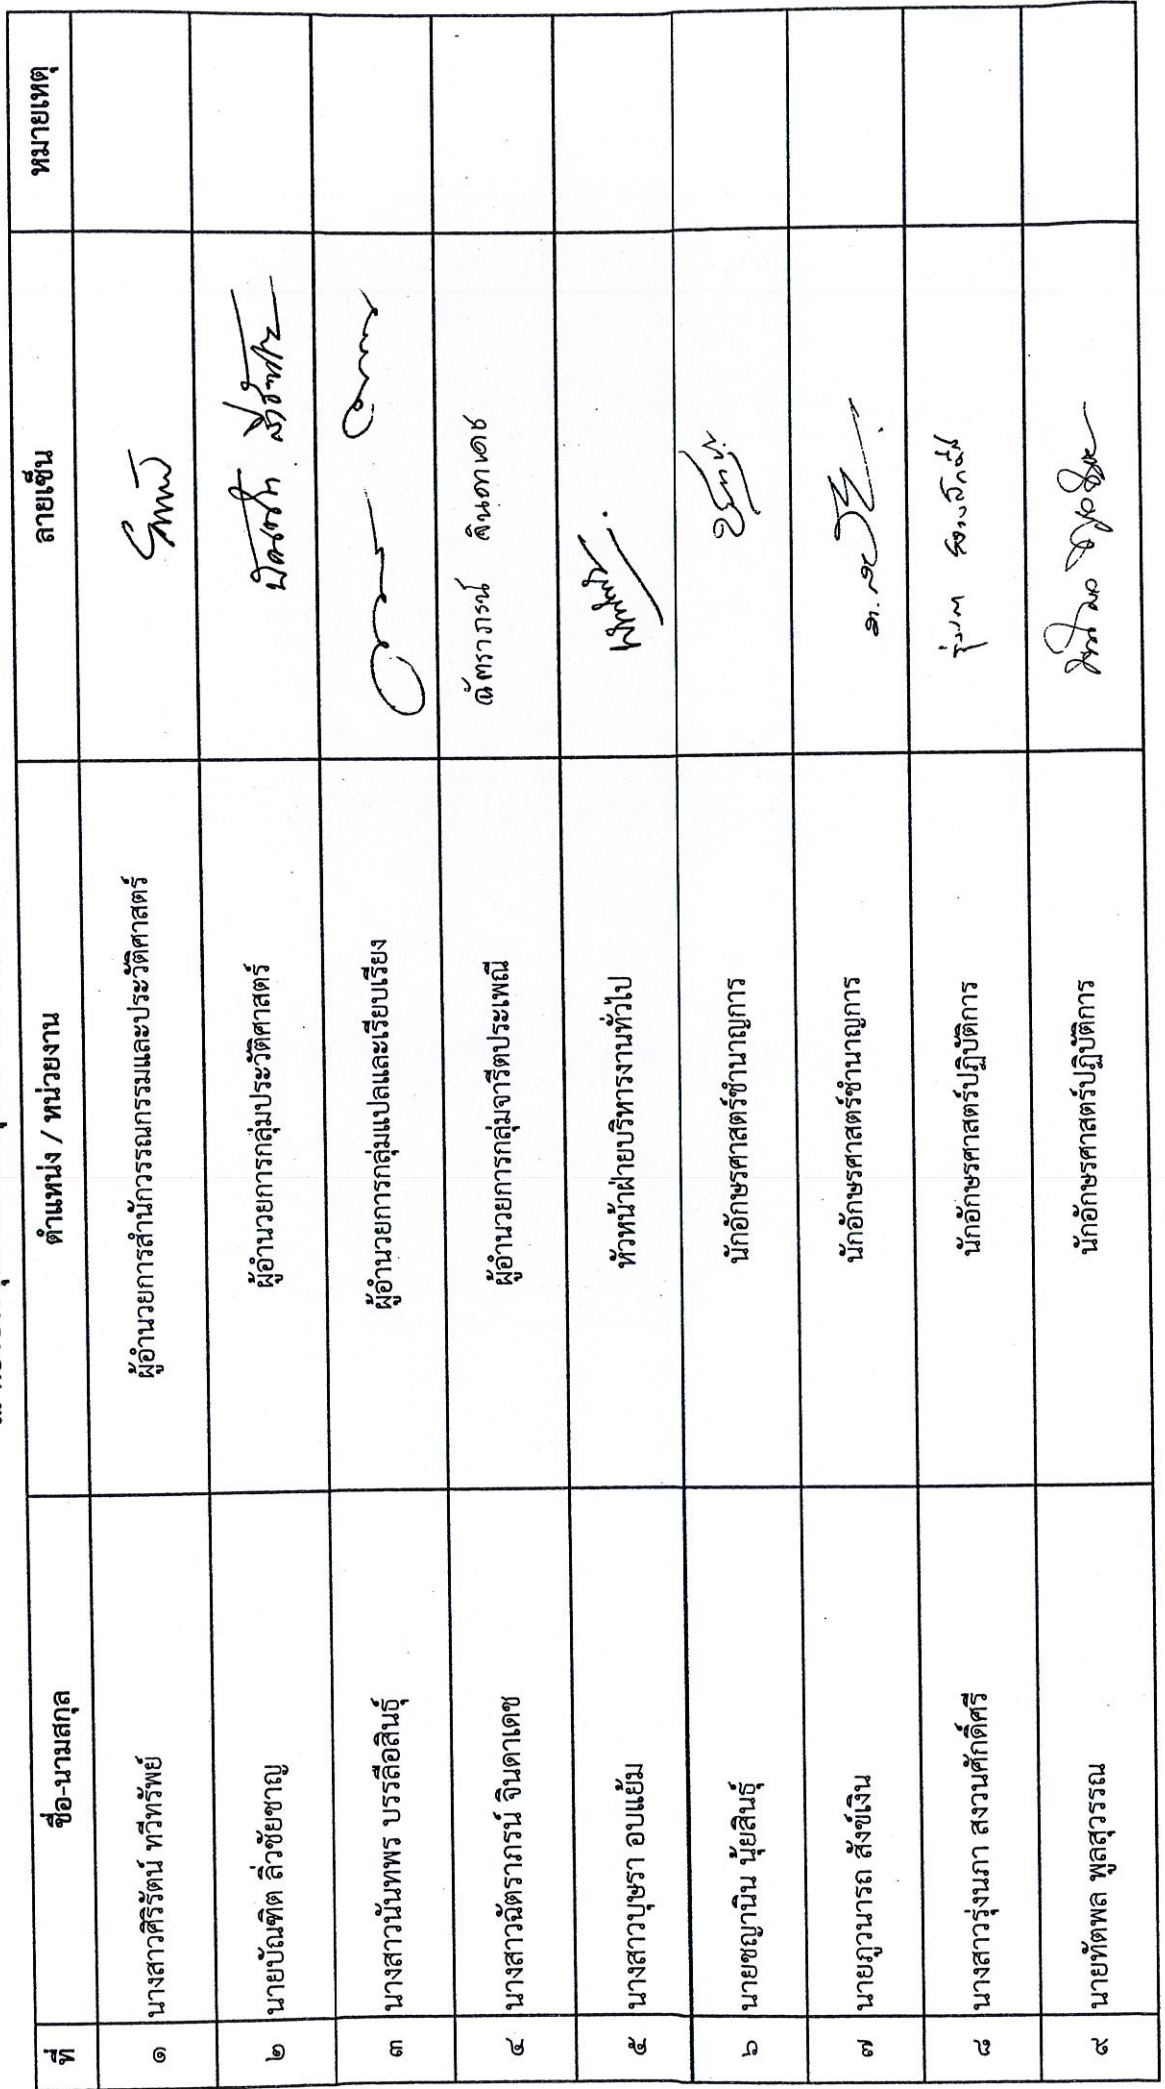 ที่ ชื่อ-นามสกุล ตำแหน่ง / หน่วยงาน ลายเซ็น หมายเหตุ
๑ นางสาวศิริรัตน์ ทวีทรัพย์ ผู้อำนวยการสำนักวรรณกรรมและประวัติศาสตร์
๒ นายบัณฑิต ลิ่วชัยชาญ ผู้อำนวยการกลุ่มประวัติศาสตร์
๓ นางสาวนันทพร บรรลือสินธุ์ ผู้อำนวยการกลุ่มแปลและเรียบเรียง
๔ นางสาวฉัตราภรณ์ จินดาเดช ผู้อำนวยการกลุ่มจารีตประเพณี ฉัตราภรณ์ จินดาเดช
๕ นางสาวบุษรา อบแย้ม หัวหน้าฝ่ายบริหารงานทั่วไป
๖ นายชญานิน นุ้ยสินธุ์ นักอักษรศาสตร์ชำนาญการ
๗ นายภูวนารถ สังข์เงิน นักอักษรศาสตร์ชำนาญการ
๘ นางสาวรุ่งนภา สงวนศักดิ์ศรี นักอักษรศาสตร์ปฏิบัติการ
๙ นายทัตพล พูลสุวรรณ นักอักษรศาสตร์ปฏิบัติการ